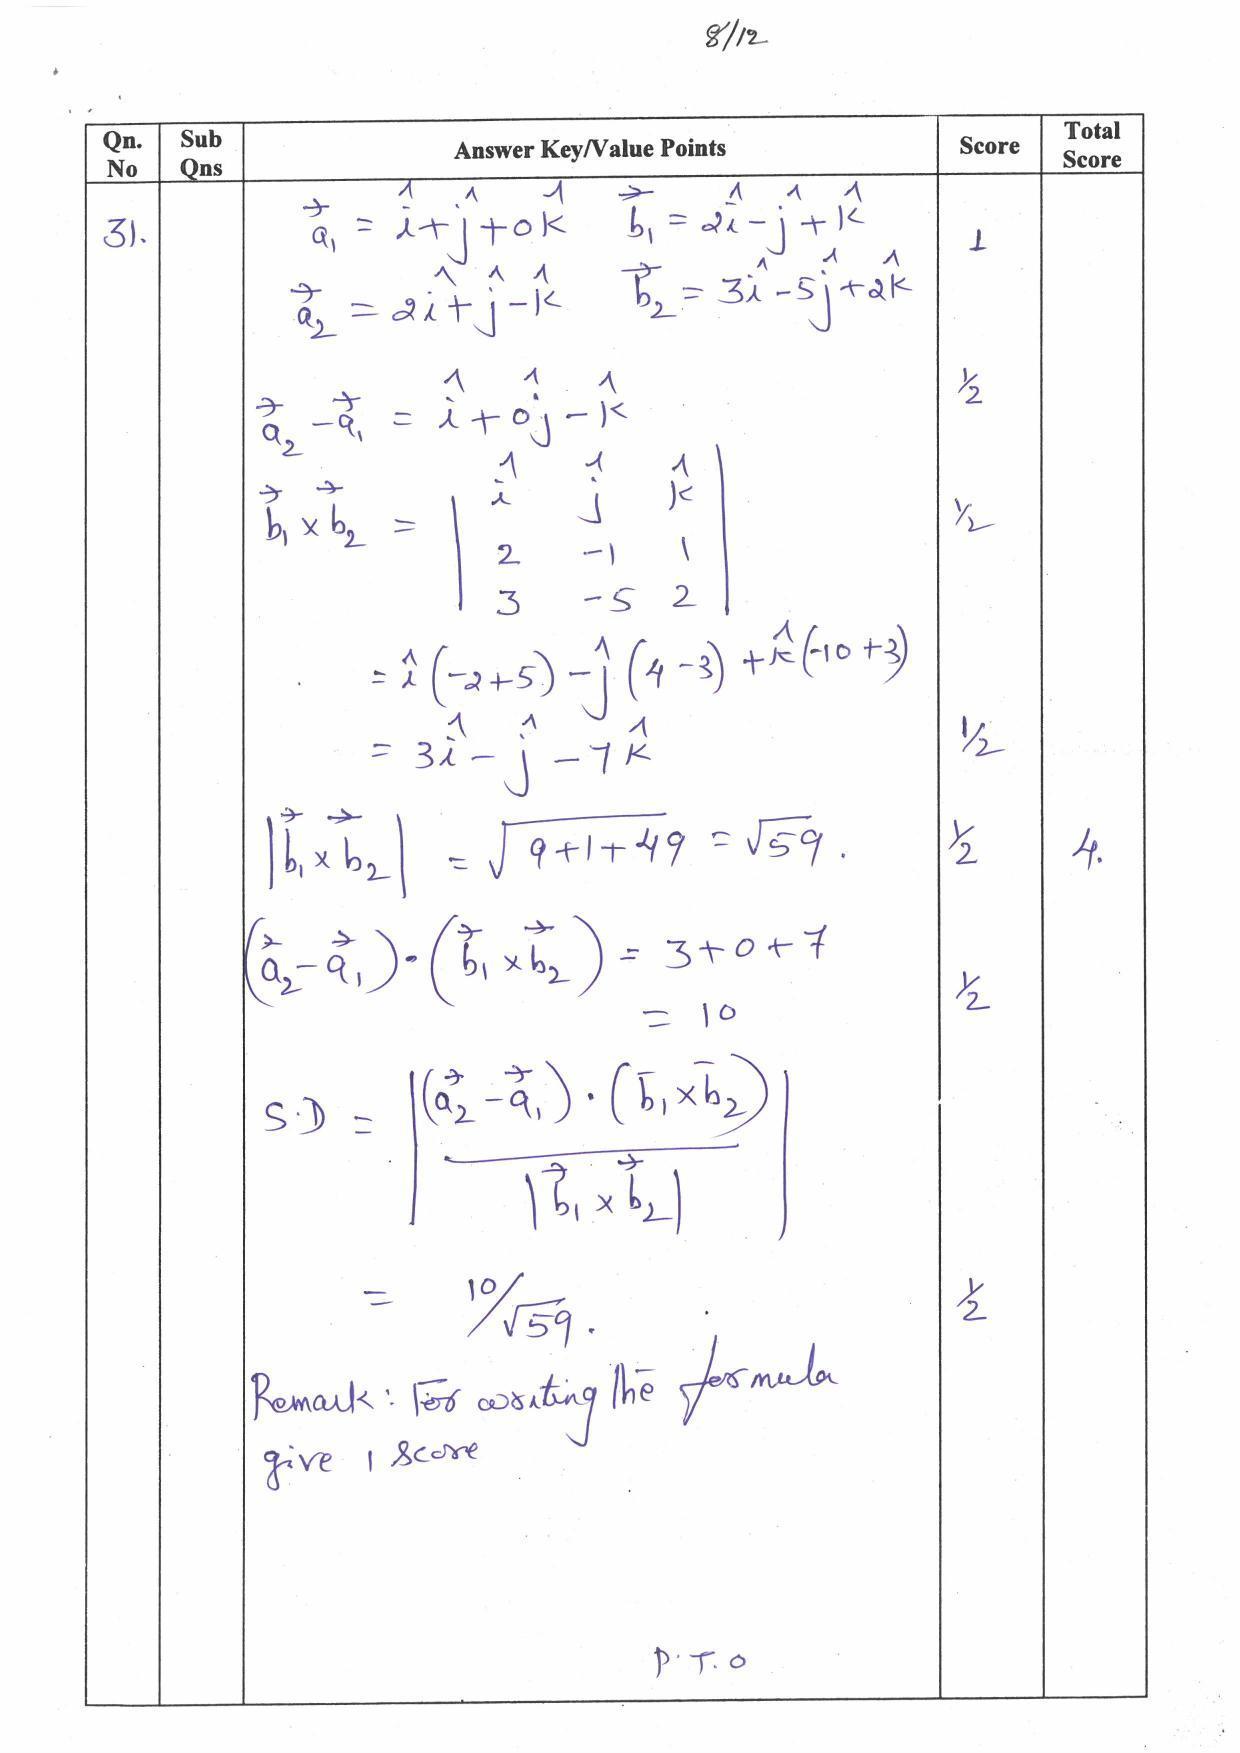 8/12
Qn. No | Sub Qns | Answer Key/Value Points | Score | Total Score
31. $\vec{a}_1 = \hat{i}+\hat{j}+0\hat{k}$ $\vec{b}_1 = 2\hat{i}-\hat{j}+\hat{k}$ 1
$\vec{a}_2 = 2\hat{i}+\hat{j}-\hat{k}$ $\vec{b}_2 = 3\hat{i}-5\hat{j}+2\hat{k}$
$\vec{a}_2-\vec{a}_1 = \hat{i}+0\hat{j}-\hat{k}$ ½
$\vec{b}_1 \times \vec{b}_2 = \begin{vmatrix} \hat{i} & \hat{j} & \hat{k} \\ 2 & -1 & 1 \\ 3 & -5 & 2 \end{vmatrix}$ ½
$= \hat{i}(-2+5)-\hat{j}(4-3)+\hat{k}(-10+3)$
$= 3\hat{i}-\hat{j}-7\hat{k}$ ½
$|\vec{b}_1 \times \vec{b}_2| = \sqrt{9+1+49} = \sqrt{59}.$ ½ 4.
$(\vec{a}_2-\vec{a}_1)\cdot(\vec{b}_1 \times \vec{b}_2) = 3+0+7$
$= 10$ ½
S.D $= \left|\frac{(\vec{a}_2-\vec{a}_1)\cdot(\bar{b}_1 \times \bar{b}_2)}{|\vec{b}_1 \times \vec{b}_2|}\right|$
$= 10/\sqrt{59}.$ ½
Remark: For writing the formula
give 1 score
P.T.O